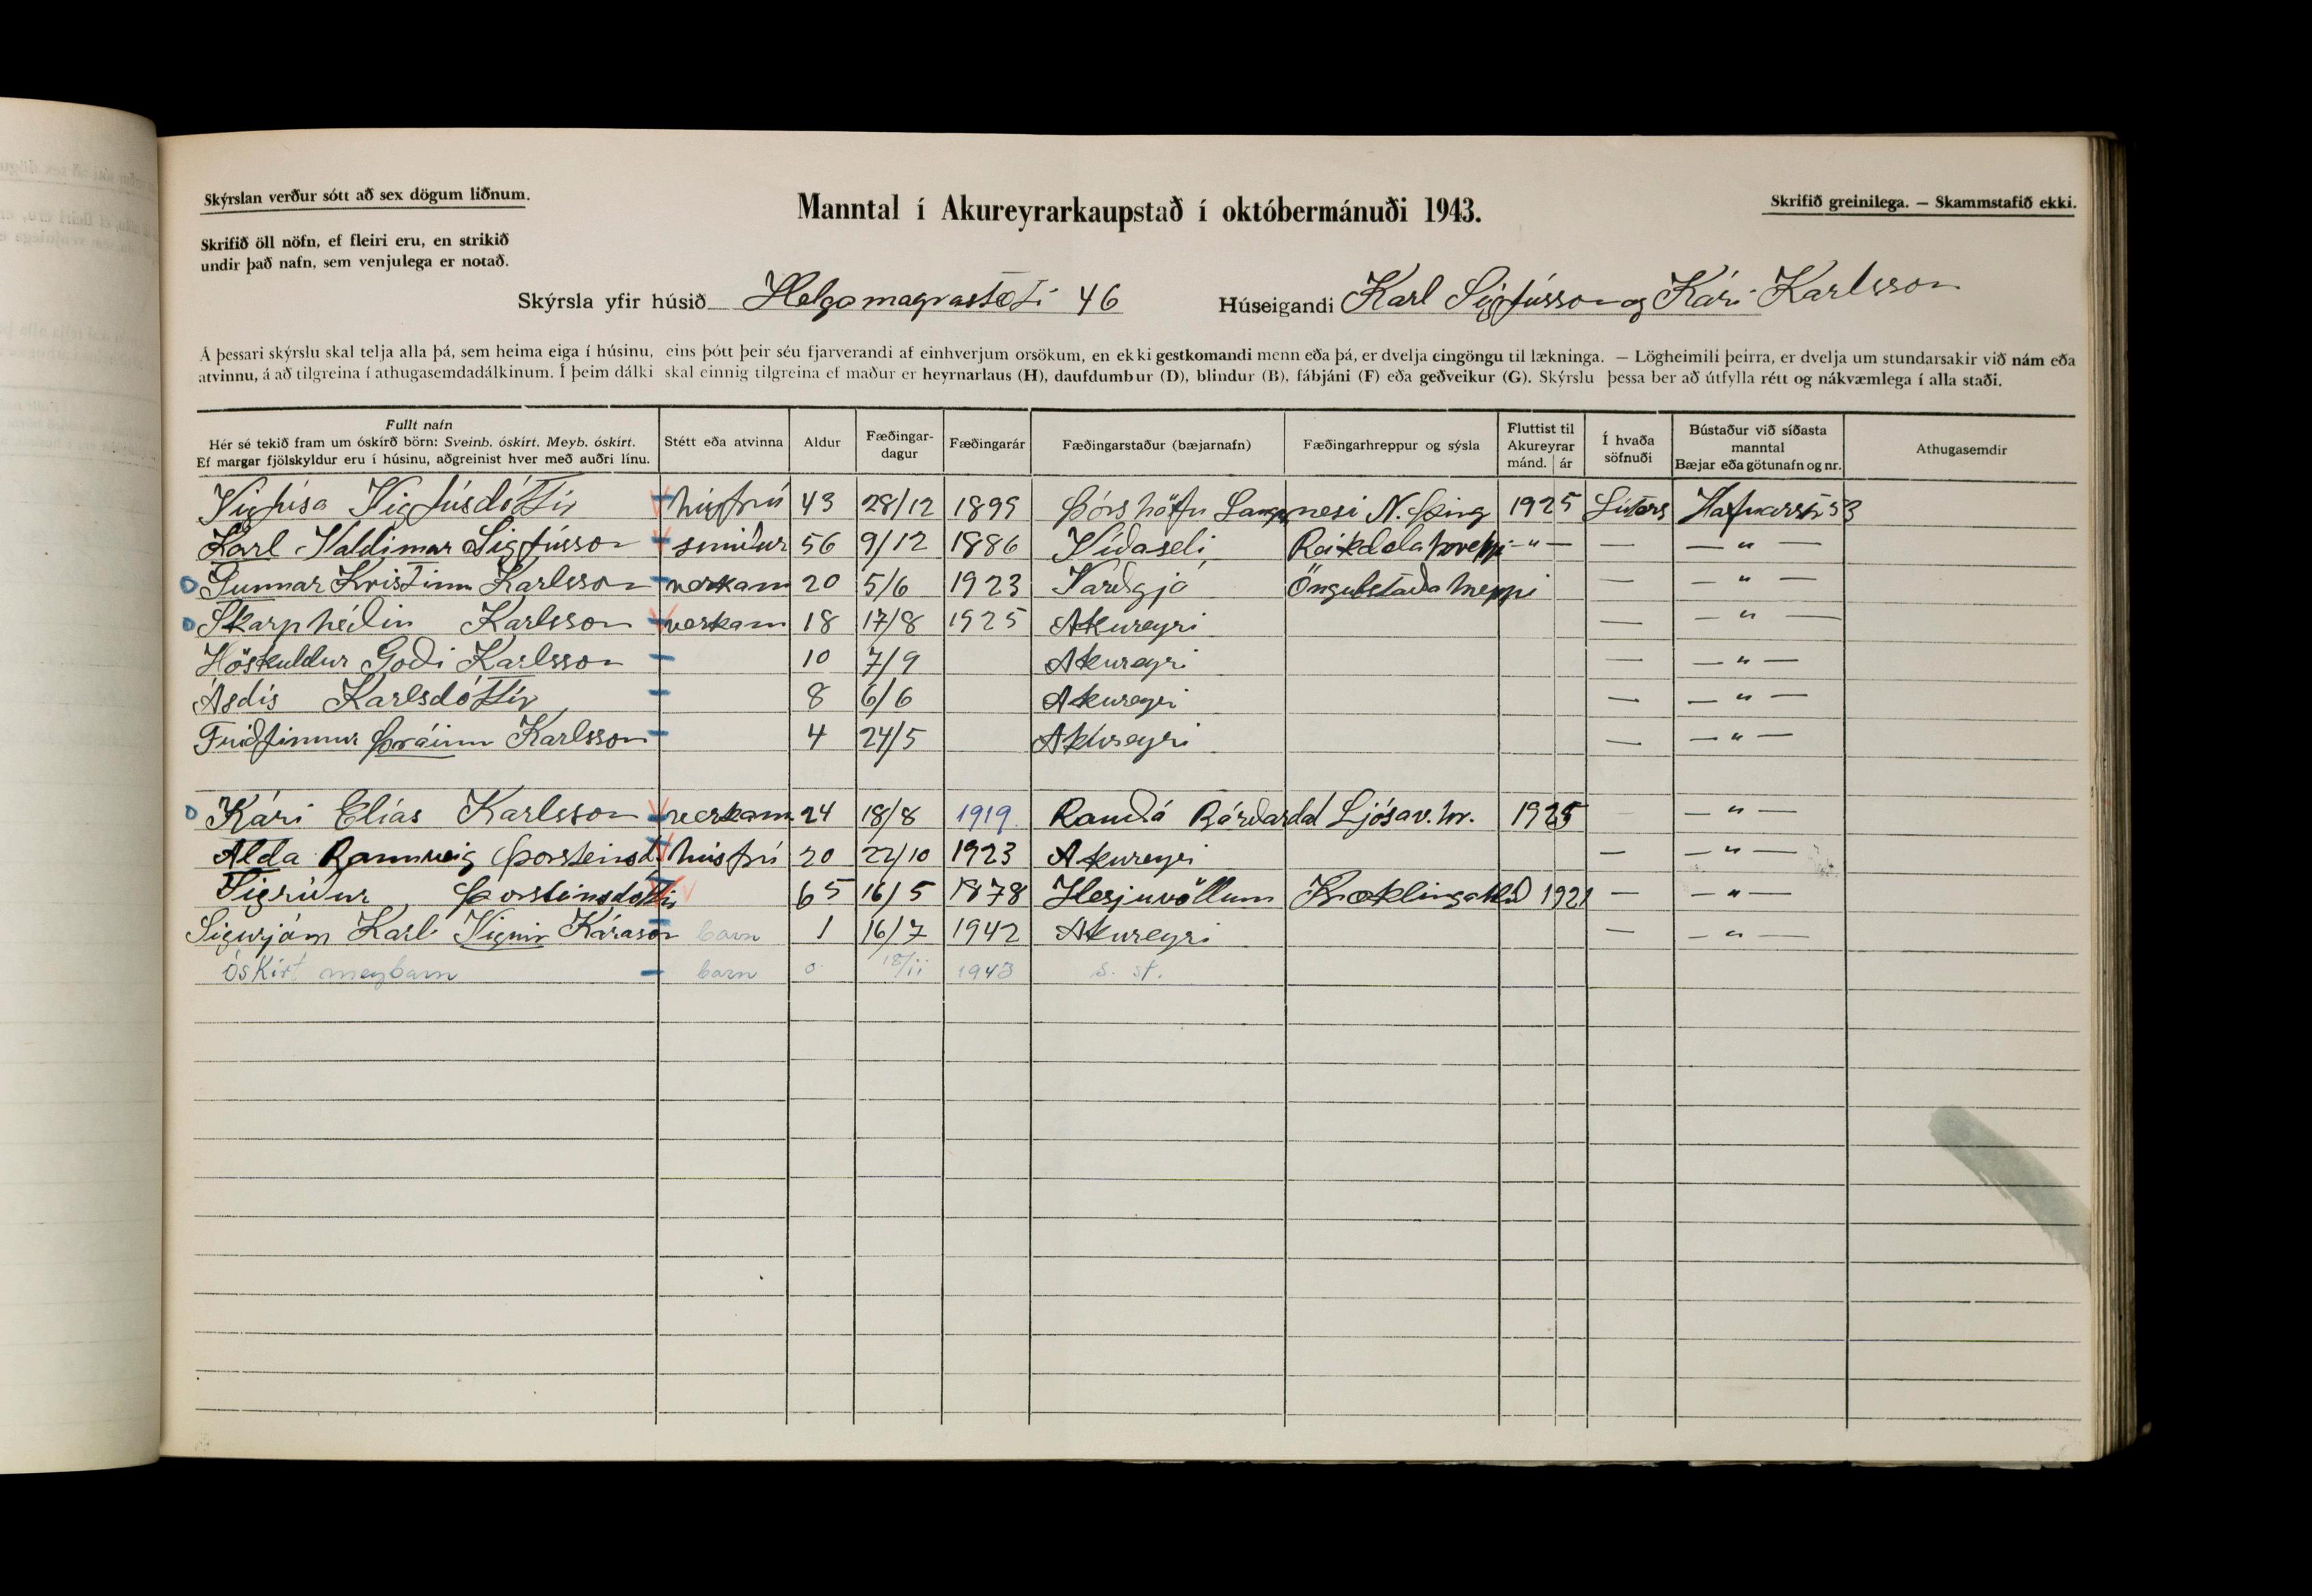 Skýrslan verður sótt að sex dögum liðnum.
Manntal í Akureyrarkaupstað í októbermánuði 1943.
Skrifið greinilega. — Skammstafið ekki.
Skrifið öll nöfn, ef fleiri eru, en strikið
undir það nafn, sem venjulega er notað.
Skýrsla yfir húsið Helgamagrastræti 46 Húseigandi Karl Sigfússon og Kári Karlsson
Á þessari skýrslu skal telja alla þá, sem heima eiga í húsinu, eins þótt þeir séu fjarverandi af einhverjum orsökum, en ekki gestkomandi menn eða þá, er dvelja eingöngu til lækninga. — Lögheimili þeirra, er dvelja um stundarsakir við nám eða
atvinnu, á að tilgreina í athugasemdadálkinum. Í þeim dálki skal einnig tilgreina ef maður er heyrnarlaus (H), daufdumbur (D), blindur (B), fábjáni (F) eða geðveikur (G). Skýrslu þessa ber að útfylla rétt og nákvæmlega í alla staði.
Fullt nafn
Hér sé tekið fram um óskírð börn: Sveinb. óskírt. Meyb. óskírt.
Ef margar fjölskyldur eru í húsinu, aðgreinist hver með auðri línu.
Stétt eða atvinna
Aldur
Fæðingar-
dagur
Fæðingarár
Fæðingarstaður (bæjarnafn)
Fæðingarhreppur og sýsla
Fluttist til
Akureyrar
mánd. ár
Í hvaða
söfnuði
Bústaður við síðasta
manntal
Bæjar eða götunafn og nr.
Athugasemdir
Vigfúsa Vigfúsdóttir húsfrú 43 28/12 1899 Þórshöfn Langanesi N. Þing 1925 Lúters Hafnarstr 53
Karl Valdimar Sigfússon smiður 56 9/12 1886 Víðaseli Reikdælahreppi -"- — — " —
Gunnar Kristinn Karlsson verkam 20 5/6 1923 Varðgjá Öngulstaðahreppi — — " —
Skarphéðin Karlsson verkam 18 17/8 1925 Akureyri — — " —
Höskuldur Goði Karlsson 10 7/9 Akureyri — — " —
Ásdís Karlsdóttir 8 6/6 Akureyri — — " —
Friðfinnur Þráinn Karlsson 4 24/5 Akureyri — — " —
Kári Elías Karlsson verkam. 24 18/8 1919 Rauðá Bárðardal Ljósav.hr. 1925 — — " —
Alda Rannveig Þorsteinsd. húsfrú 20 22/10 1923 Akureyri — — " —
Sigríður Þorsteinsdóttir 65 16/5 1878 Hesjuvöllum Kræklingahlíð 1921 — — " —
Sigurjón Karl Vignir Kárason barn 1 16/7 1942 Akureyri — — " —
óskírt meybarn barn 0 18/11 1943 s. st.